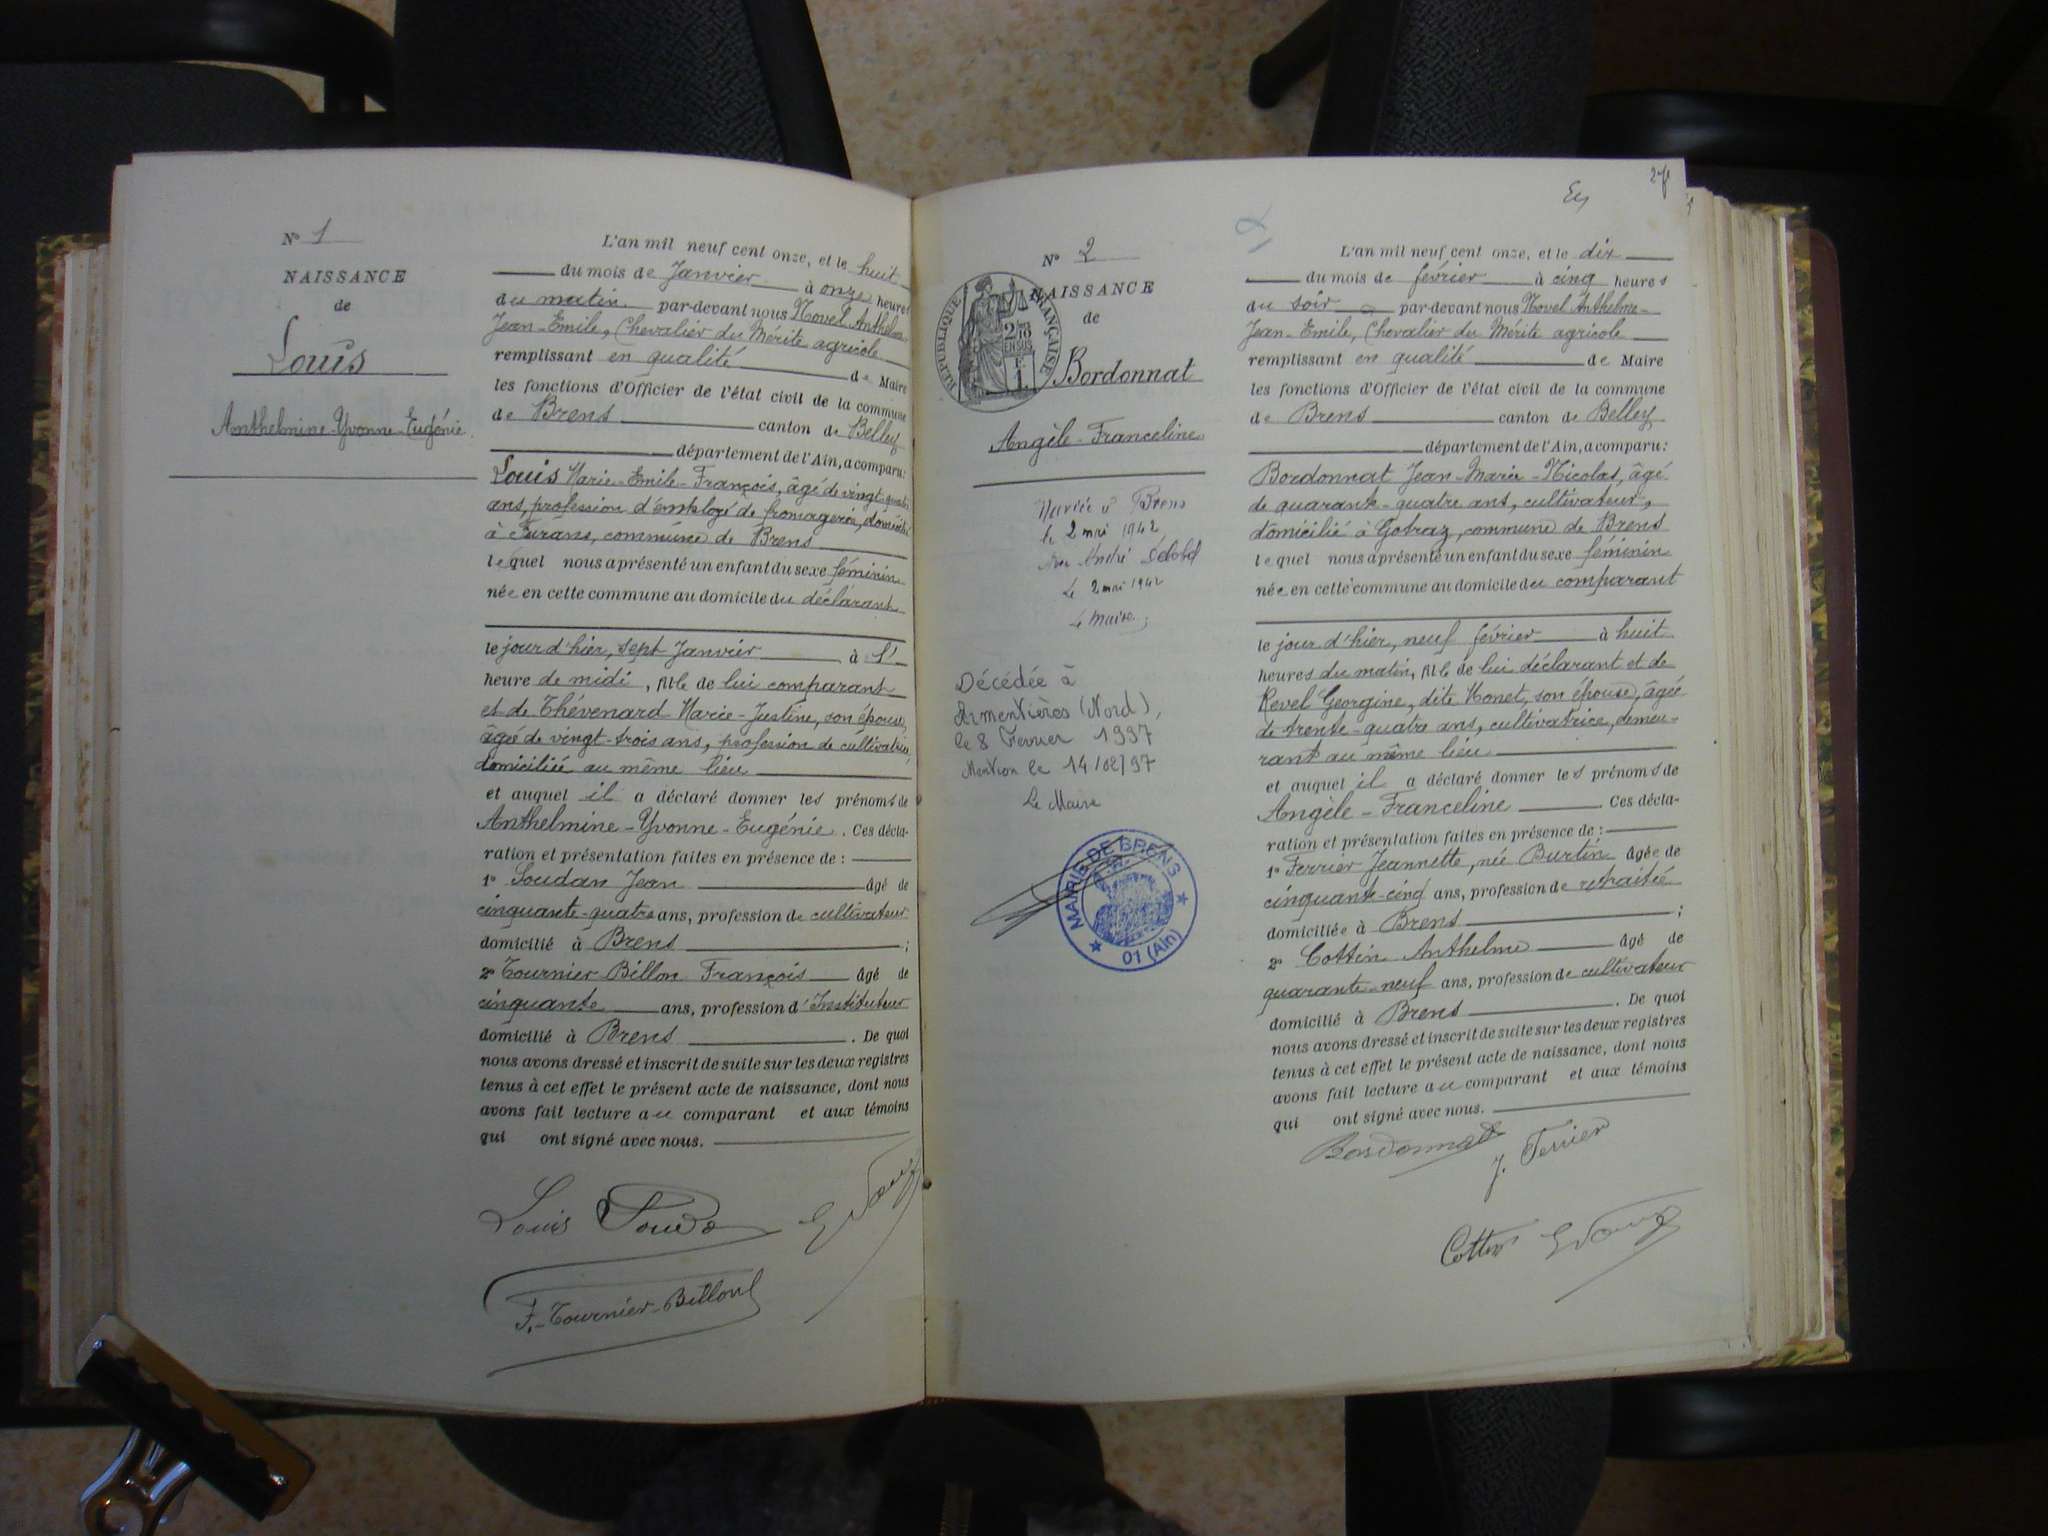 N° 1
NAISSANCE
de
Louis
Anthelmine-Yvonne-Eugénie
L'an mil neuf cent onze, et le huit
du mois de Janvier à onze heures
du matin par-devant nous Novel Anthelme
Jean-Emile, Chevalier du Mérite agricole
remplissant en qualité de Maire
les fonctions d'Officier de l'état civil de la commune
de Brens canton de Belley
département de l'Ain, a comparu:
Louis Marie-Emile-François, âgé de vingt-quatre
ans, profession d'employé de fromagerie, domicilié
à Furans, commune de Brens
lequel nous a présenté un enfant du sexe féminin
née en cette commune au domicile du déclarant
le jour d'hier, sept Janvier à l'
heure de midi, fille de lui comparant
et de Thévenard Marie-Justine, son épouse,
âgée de vingt-trois ans, profession de cultivatrice,
domiciliée au même lieu
et auquel il a déclaré donner les prénoms de
Anthelmine-Yvonne-Eugénie. Ces décla-
ration et présentation faites en présence de :
1° Soudan Jean âgé de
cinquante-quatre ans, profession de cultivateur
domicilié à Brens ;
2° Tournier Billon François âgé de
cinquante ans, profession d'Instituteur
domicilié à Brens. De quoi
nous avons dressé et inscrit de suite sur les deux registres
tenus à cet effet le présent acte de naissance, dont nous
avons fait lecture au comparant et aux témoins
qui ont signé avec nous.
Louis Souda
F.-Tournier-Billon
27
N° 2
NAISSANCE
de
RÉPUBLIQUE FRANÇAISE
Bordonnat
Angèle-Franceline
Mariée à Brens
le 2 mai 1942
avec André
Le 2 mai 1942
Le Maire,
Décédée à
Armentières (Nord),
le 8 Fevrier 1997
Mention le 14/02/97
Le Maire
MAIRIE DE BRENS
01 (Ain)
L'an mil neuf cent onze, et le dix
du mois de février à cinq heures
du soir par-devant nous Novel Anthelme-
Jean-Emile, Chevalier du Mérite agricole
remplissant en qualité de Maire
les fonctions d'Officier de l'état civil de la commune
de Brens canton de Belley
département de l'Ain, a comparu:
Bordonnat Jean-Marie-Nicolas, âgé
de quarante-quatre ans, cultivateur,
domicilié à Gotraz, commune de Brens
lequel nous a présenté un enfant du sexe féminin
née en cette commune au domicile du comparant
le jour d'hier, neuf février à huit
heures du matin, fille de lui déclarant et de
Revel Georgine, dite Monet, son épouse, âgée
de trente-quatre ans, cultivatrice, demeu-
rant au même lieu
et auquel il a déclaré donner les prénoms de
Angèle-Franceline Ces décla-
ration et présentation faites en présence de :
1° Ferrier Jeannette, née Burtin âgée de
cinquante-cinq ans, profession de retraitée
domiciliée à Brens ;
2° Cottin Anthelme âgé de
quarante-neuf ans, profession de cultivateur
domicilié à Brens. De quoi
nous avons dressé et inscrit de suite sur les deux registres
tenus à cet effet le présent acte de naissance, dont nous
avons fait lecture au comparant et aux témoins
qui ont signé avec nous.
Bordonnat
J. Ferrier
Cottin